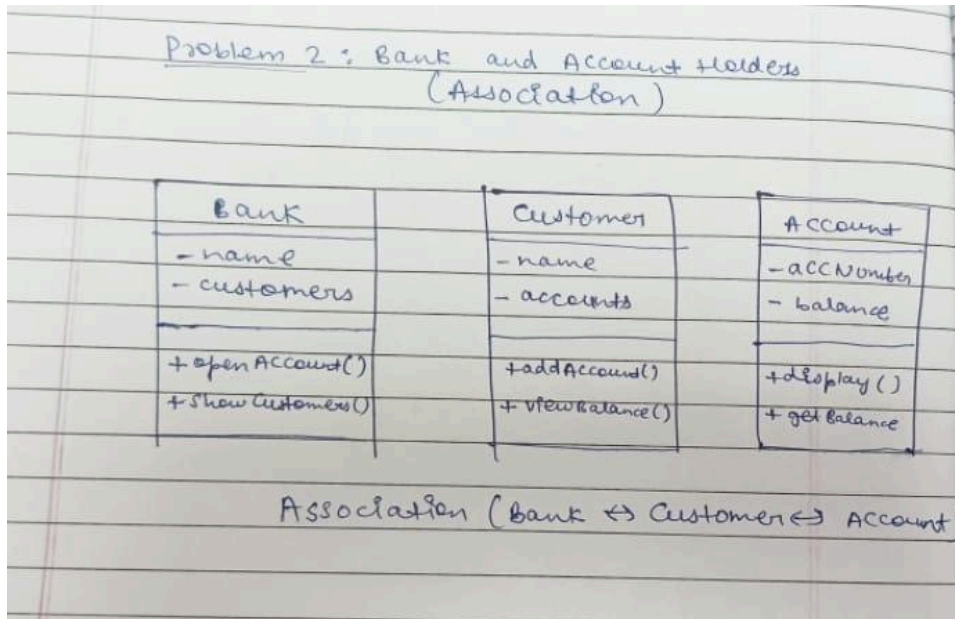 Problem 2 : Bank and Account Holders
(Association)
Bank
- name
- customers
+ openAccount()
+ showCustomers()
Customer
- name
- accounts
+ addAccount()
+ viewBalance()
Account
- accNumber
- balance
+ display()
+ getBalance
Association (Bank ↔ Customer ↔ Account